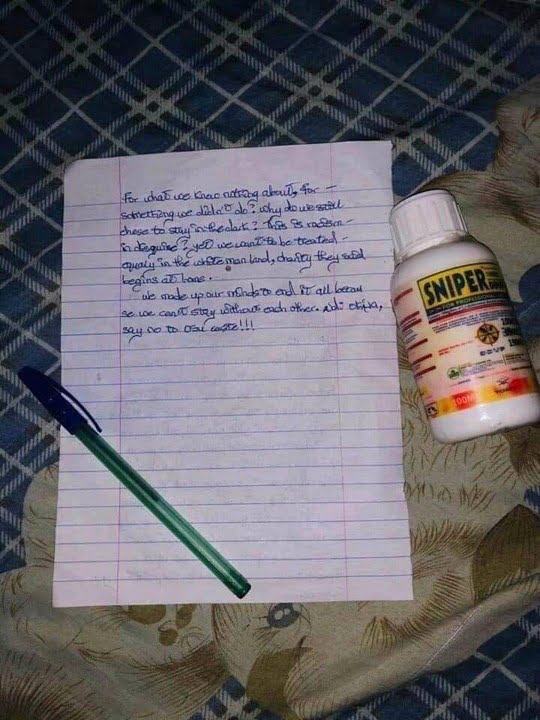 For what we know nothing about, for -
something we didn't do? why do we still
chose to stay in the dark? this is racism -
in disguise? yet we want to be treated -
equaly in the white man land, charity they said
begins at home.
we made up our minds to end it all becau
se we can't stay without each other. Ndi okija,
say no to osu caste!!!
SNIPER
100M